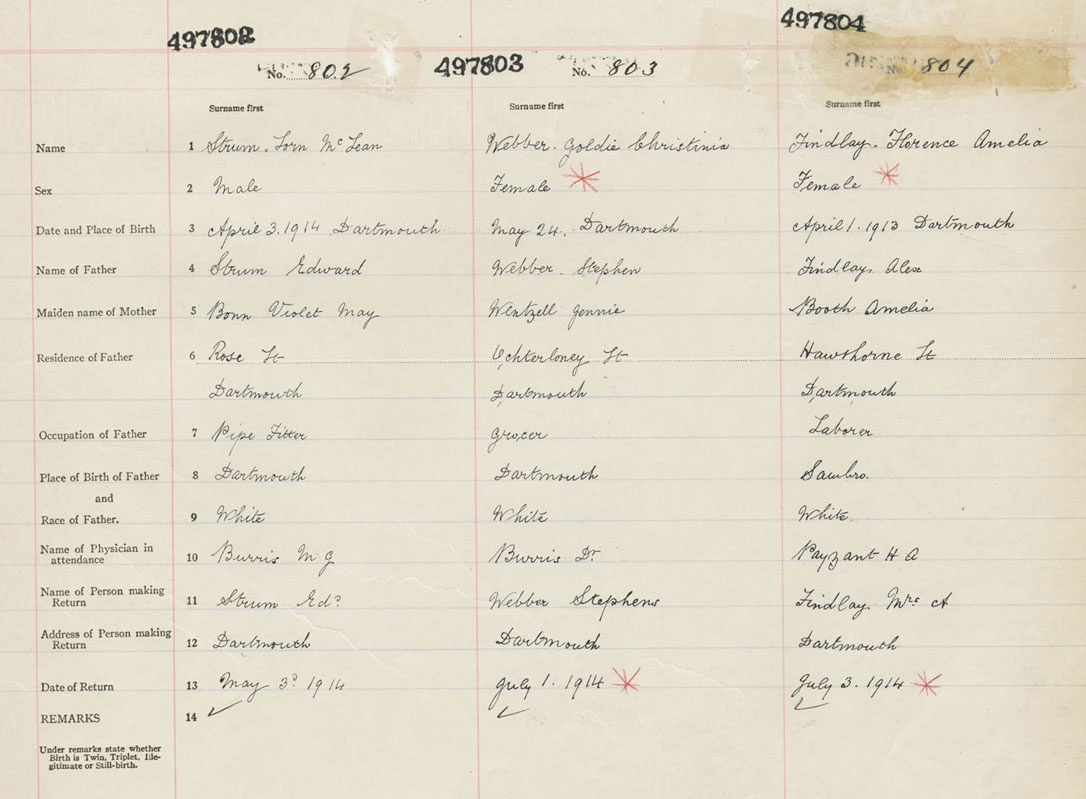 497802 497803 497804
No. 802 No. 803 No. 804
Surname first Surname first Surname first
Name 1 Strum. Lorn McLean Webber. Goldie Christinia Findlay. Florence Amelia
Sex 2 Male Female Female
Date and Place of Birth 3 April 3. 1914 Dartmouth May 24. Dartmouth April 1. 1913 Dartmouth
Name of Father 4 Strum Edward Webber. Stephen Findlay. Alex
Maiden name of Mother 5 Bonn Violet May Wentzell Jennie Booth Amelia
Residence of Father 6 Rose St Ochterloney St Hawthorne St
Dartmouth Dartmouth Dartmouth
Occupation of Father 7 Pipe Fitter Grocer Laborer
Place of Birth of Father 8 Dartmouth Dartmouth Sambro.
and
Race of Father. 9 White White White.
Name of Physician in
attendance 10 Burris M G Burris Dr. Payzant H A
Name of Person making
Return 11 Strum Edd Webber Stephens Findlay. Mrs A
Address of Person making
Return 12 Dartmouth Dartmouth Dartmouth
Date of Return 13 May 3d 1914 July 1. 1914 July 3. 1914
REMARKS 14
Under remarks state whether
Birth is Twin, Triplet. Ille-
gitimate or Still-birth.